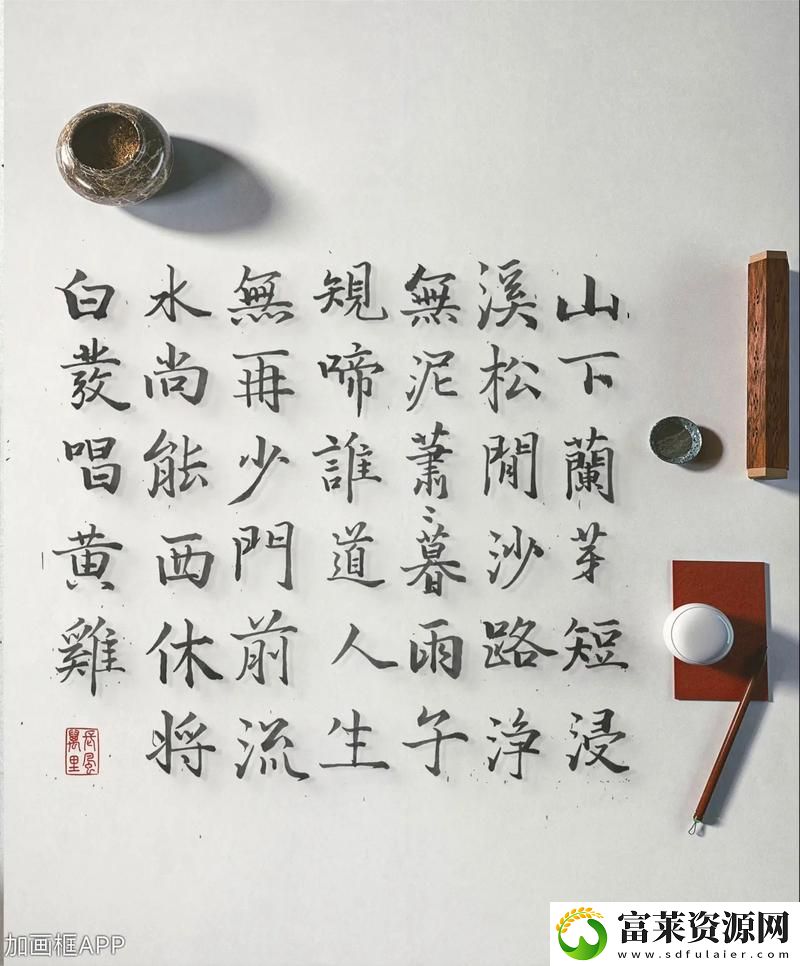 山下蘭芽短浸
溪松閒沙路淨
無泥蕭〻暮雨子
䂓啼誰道人生
無再少門前流
水尚能西休將
白發唱黄雞
長風萬里
加画框APP
富莱资源网
www.sdfulaier.com